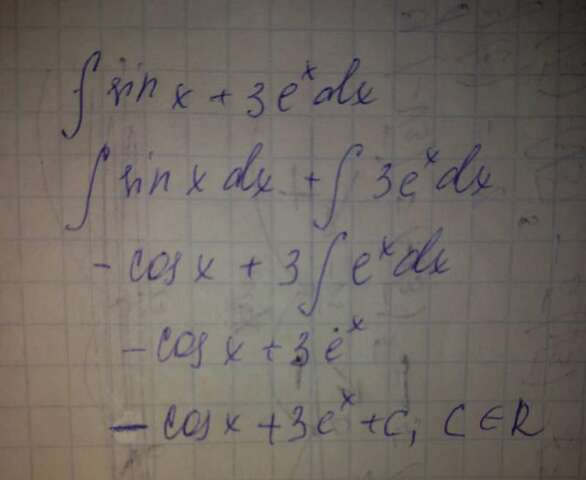 ∫ sin x + 3e^x dx
∫ sin x dx + ∫ 3e^x dx
- cos x + 3 ∫ e^x dx
- cos x + 3e^x
- cos x + 3e^x + C, C ∈ R